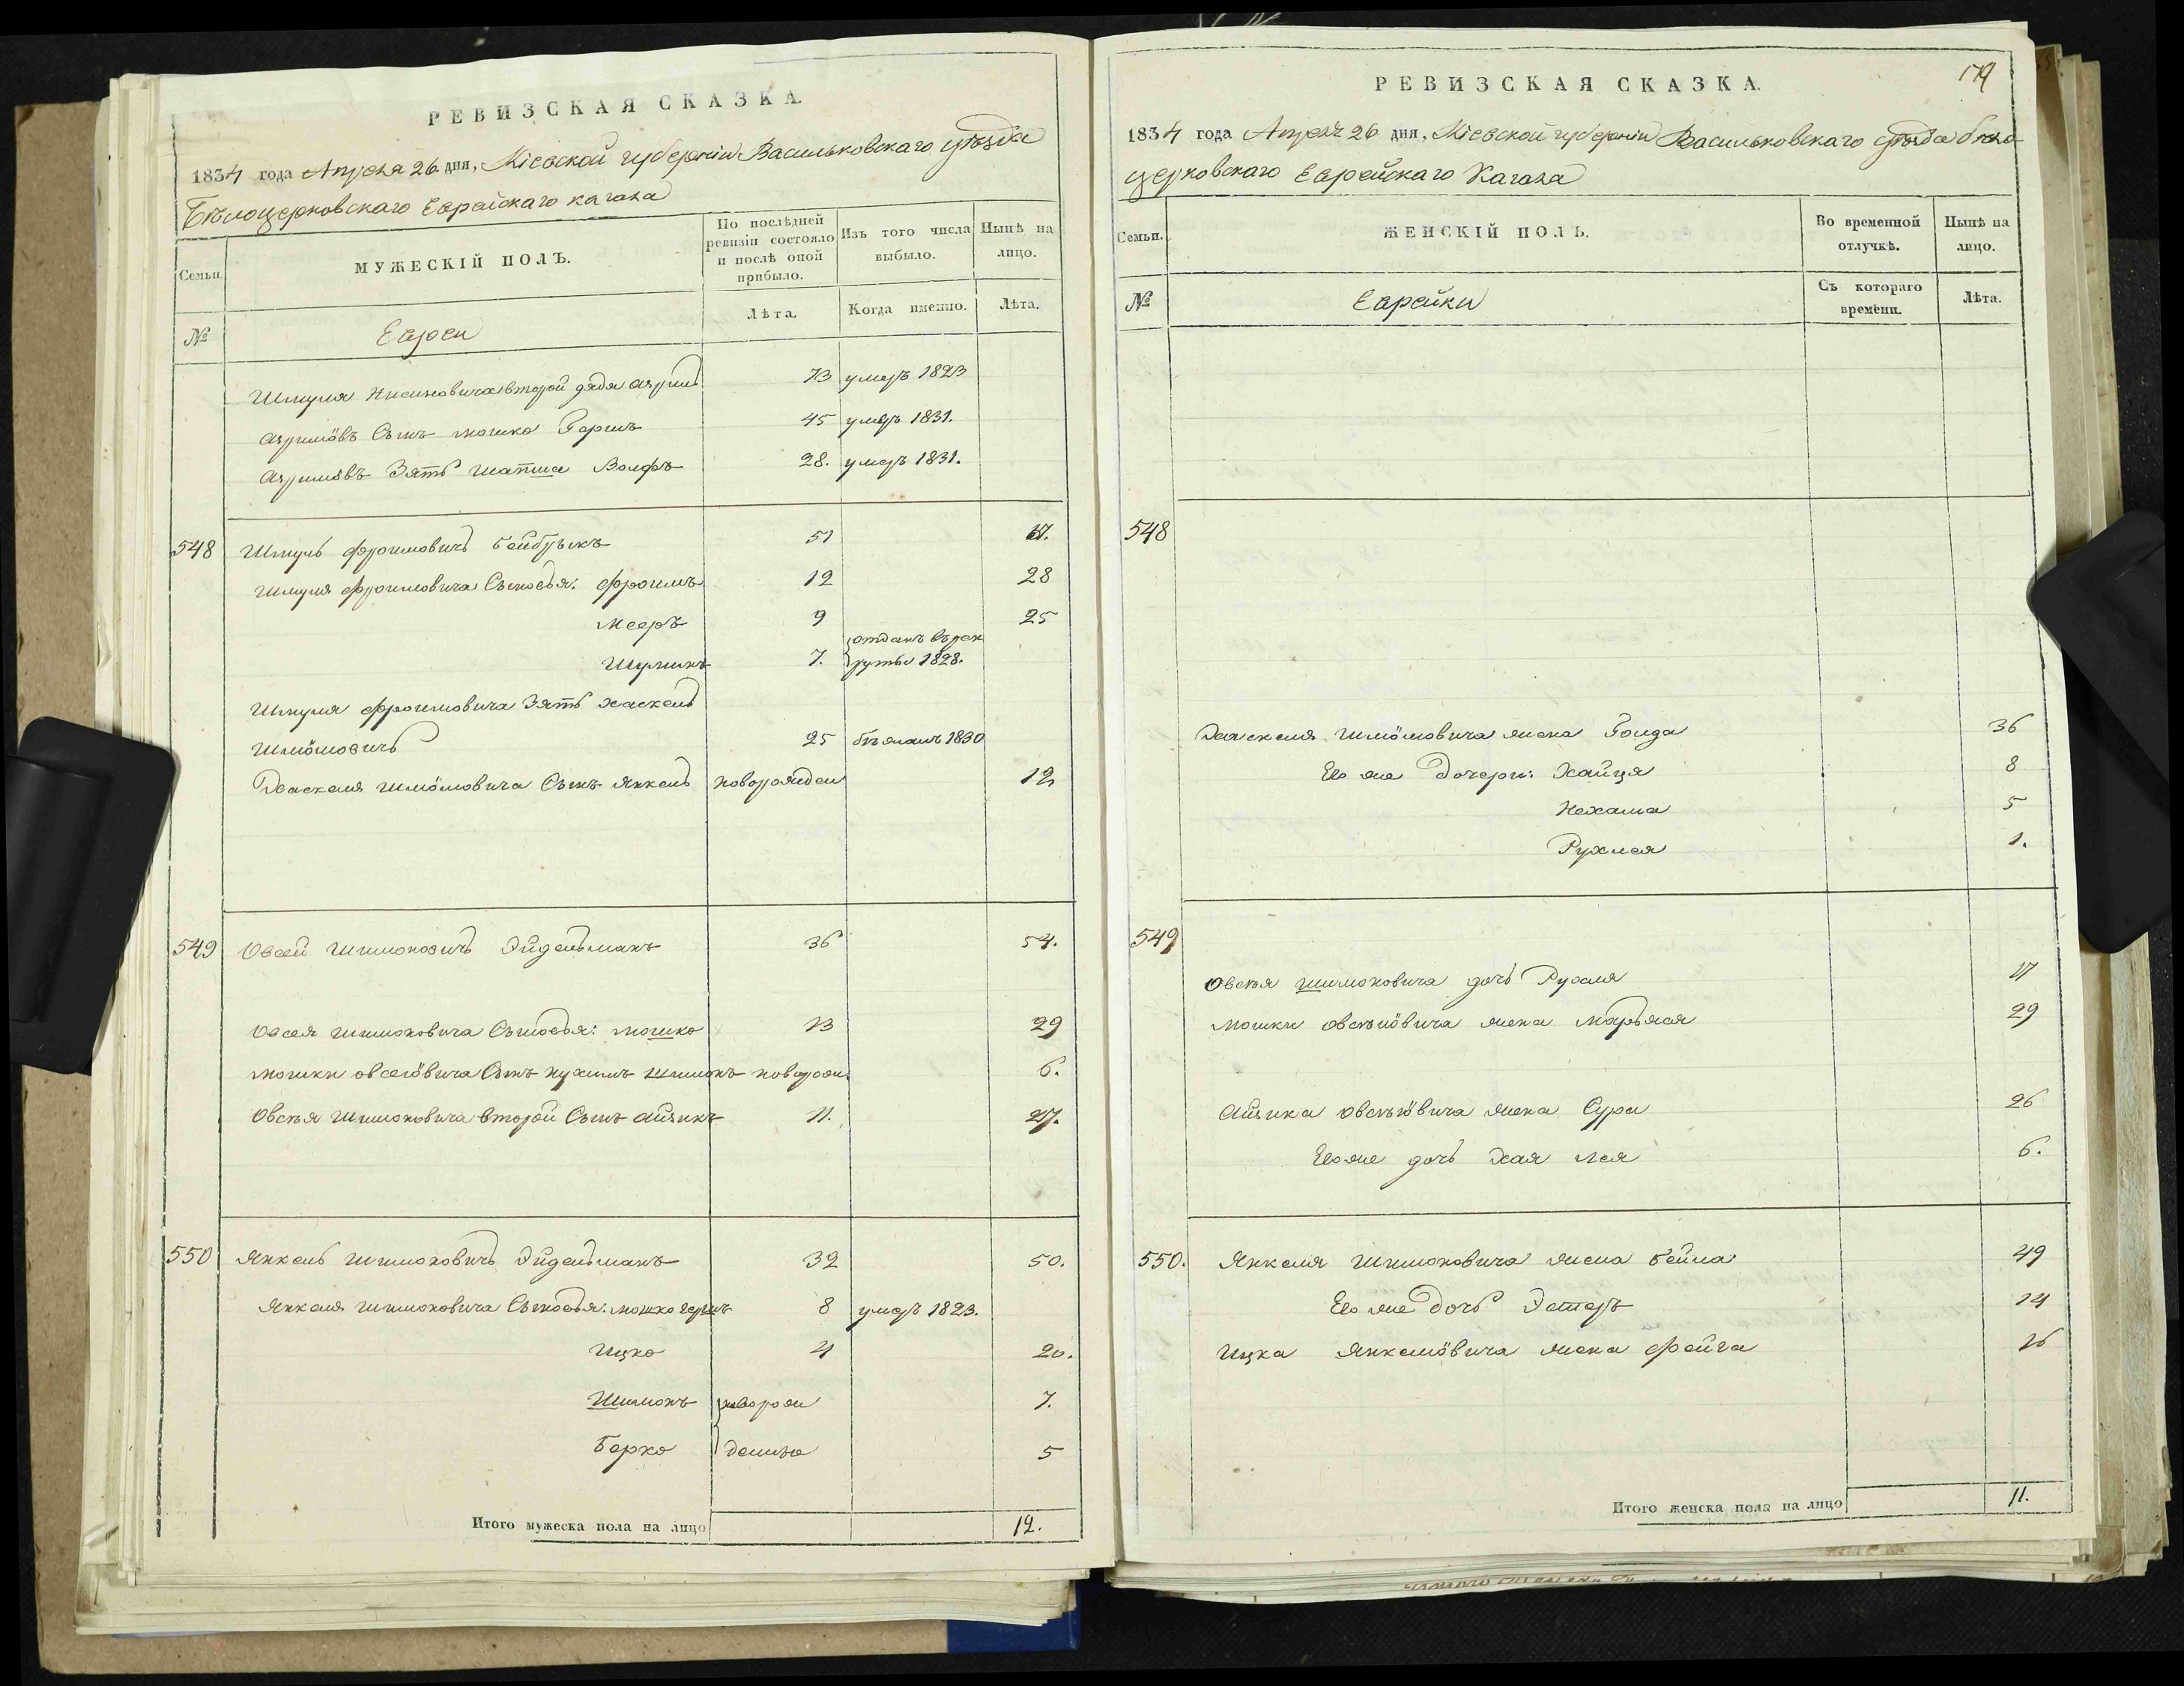 РЕВИЗСКАЯ СКАЗКА.
1834 года Апреля 26 дня, Кіевской губерніи Васильковскаго уѣзда
Бѣлоцерковскаго Еврейскаго кагала
Семьи.
МУЖЕСКІЙ ПОЛЪ.
По послѣдней ревизіи состояло и послѣ оной прибыло.
Изъ того числа выбыло.
Нынѣ на лицо.
№
Евреи
Лѣта.
Когда именно.
Лѣта.
Шмуля Нисиновича второй дядя 73 умеръ 1823
Сынъ мошко Гершъ 45 умеръ 1831.
Зять шапша Волфъ 28. умеръ 1831.
548 Шмуль Фроимовичъ 51
Шмуля Фроимовича Сыновья: Фроимъ 12 28
Мееръ 9 25
Шулимъ 7. отданъ въ рек
руты 1828.
Шмуля Фроимовича Зять Хаскель
Шлёмовичъ 25 бѣжалъ 1830
Хаскеля Шлёмовича Сынъ Янкель новорожден 12
549 Овсей Шимоновичъ Эйдельманъ 36 54.
Овсея Шимоновича Сыновья: мошко 13 29
мошки овсеёвича Сынъ нухимъ Шимонъ новорож. 6.
Овсѣя Шимоновича второй Сынъ айзикъ 11. 27.
550 Янкель Шимоновичъ Эйдельманъ 32 50.
Янкеля Шимоновича Сыновья: мошко гершъ 8 умеръ 1823.
Ицко 4 20.
Шимонъ новорож 7.
Берко денные 5
Итого мужеска пола на лицо 12.
179
РЕВИЗСКАЯ СКАЗКА.
1834 года Апреля 26 дня, Кіевской губерніи Васильковскаго уѣзда бѣло
церковскаго Еврейскаго Кагала
Семьи.
ЖЕНСКІЙ ПОЛЪ.
Во временной отлучкѣ.
Нынѣ на лицо.
№
Еврейки
Съ котораго времени.
Лѣта.
548
Хаскеля Шлёмовича жена Голда 36
Его же дочери: Хайця 8
Нехама 5
Рухлея 1.
549
Овсѣя Шимоновича дочь Рухля 17
мошки овсѣёвича жена Марьяся 29
Айзика овсѣёвича жена Сура 26
Его же дочь Хая лея 6.
550. Янкеля Шимоновича жена Бейла 49
Его же дочь Эстеръ 14
Ицка Янкелёвича жена Фейга 16
Итого женска пола на лицо 11.